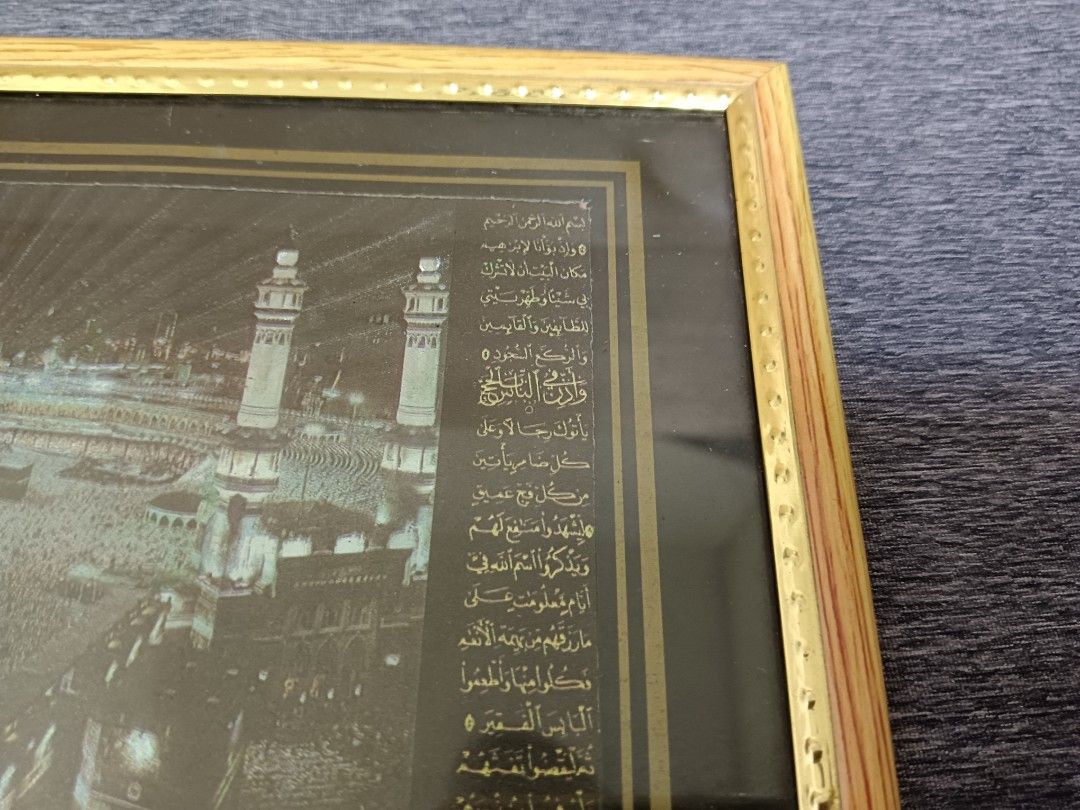 بِسْمِ ٱللَّهِ ٱلرَّحْمَٰنِ ٱلرَّحِيمِ
۞ وَإِذْ بَوَّأْنَا لِإِبْرَٰهِيمَ
مَكَانَ ٱلْبَيْتِ أَن لَّا تُشْرِكْ
بِي شَيْئًا وَطَهِّرْ بَيْتِيَ
لِلطَّآئِفِينَ وَٱلْقَآئِمِينَ
وَٱلرُّكَّعِ ٱلسُّجُودِ ۞
وَأَذِّن فِي ٱلنَّاسِ بِٱلْحَجِّ
يَأْتُوكَ رِجَالًا وَعَلَىٰ
كُلِّ ضَامِرٍ يَأْتِينَ
مِن كُلِّ فَجٍّ عَمِيقٍ
۞ لِّيَشْهَدُوا۟ مَنَٰفِعَ لَهُمْ
وَيَذْكُرُوا۟ ٱسْمَ ٱللَّهِ فِيٓ
أَيَّامٍ مَّعْلُومَٰتٍ عَلَىٰ
مَا رَزَقَهُم مِّنۢ بَهِيمَةِ ٱلْأَنْعَٰمِ
فَكُلُوا۟ مِنْهَا وَأَطْعِمُوا۟
ٱلْبَآئِسَ ٱلْفَقِيرَ ۞
ثُمَّ لْيَقْضُوا۟ تَفَثَهُمْ